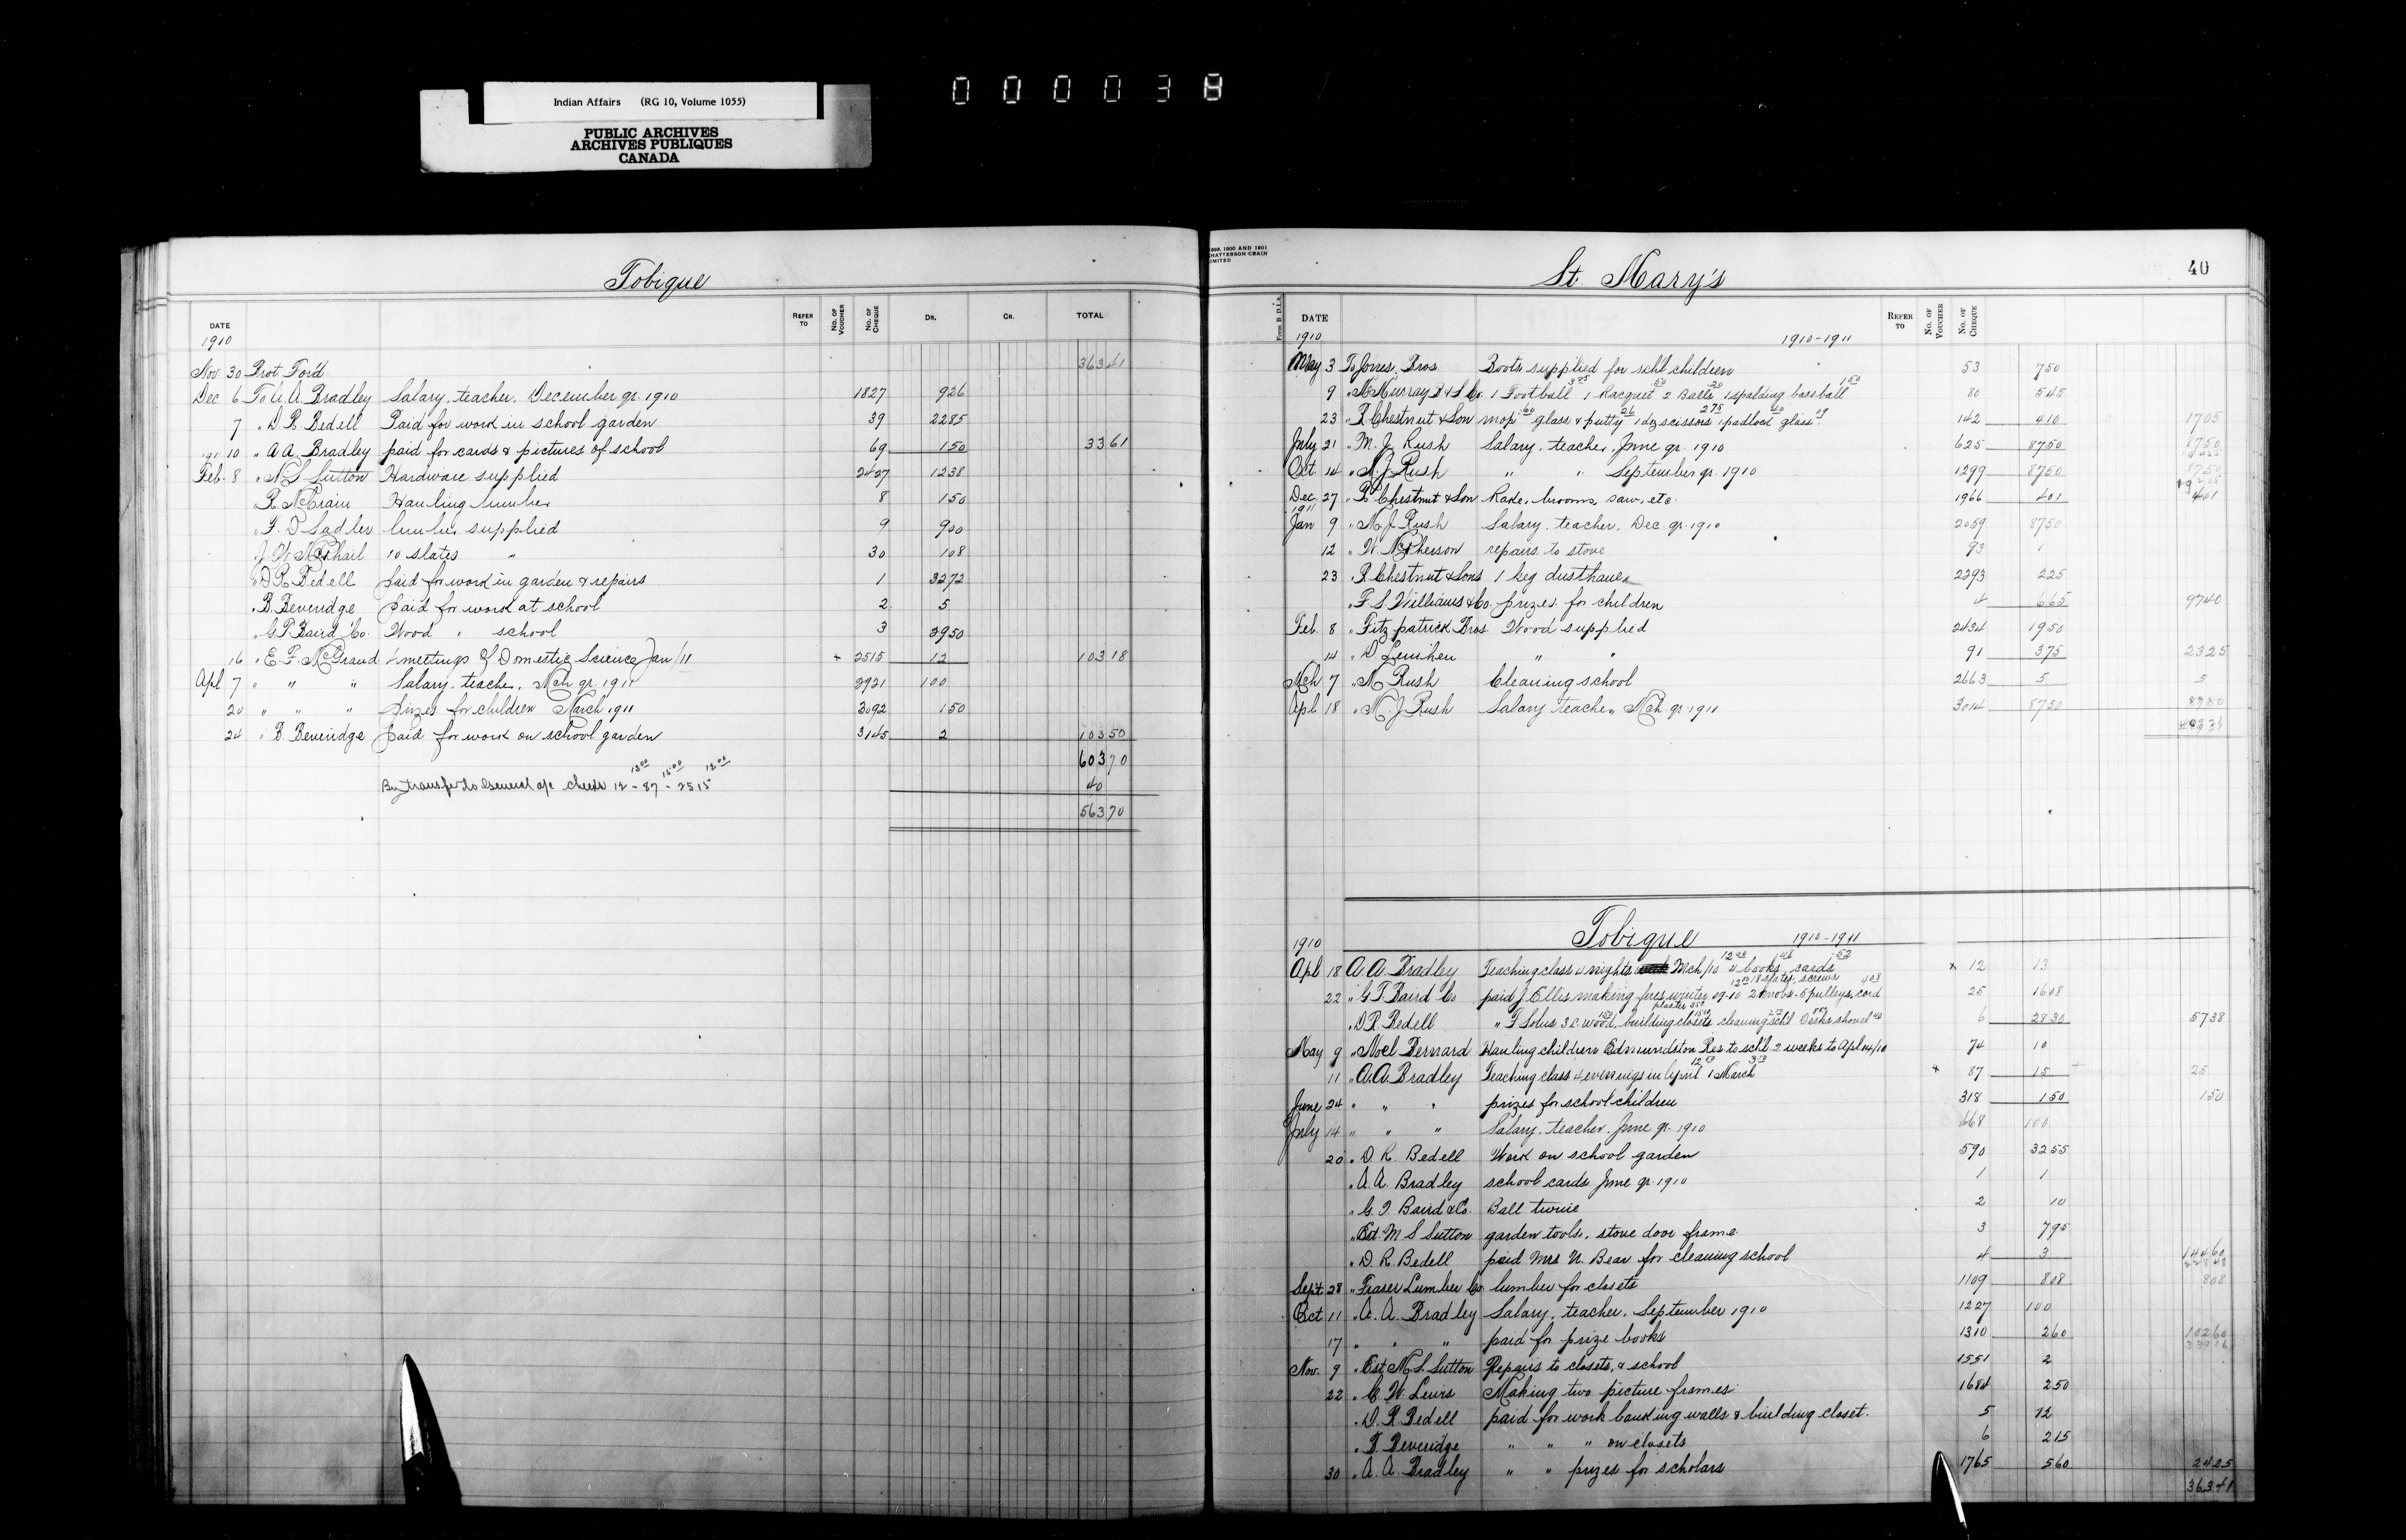 Indian Affairs (RG 10, Volume 1055)
PUBLIC ARCHIVES
ARCHIVES PUBLIQUES
CANADA
000038
Tobique
DATE REFER TO No. OF VOUCHER No. OF CHEQUE DR. CR. TOTAL
1910
Nov. 30 Brot Ford 363 41
Dec 6 To A. A. Bradley Salary, teacher, December qr. 1910 1827 926
7 " D R Bedell Paid for work in school garden 39 2285
10 " A A. Bradley paid for cards & pictures of school 69 150 33 61
1911
Feb. 8 " M S Sutton Hardware supplied 2427 1238
R. McCrain Hauling lumber 8 150
" F. D Sadler lumber supplied 9 900
J. W. McPhail 10 slates " 30 108
" D R Bedell paid for work in garden & repairs 1 3272
" B. Beveridge paid for work at school 2 5
" G T Baird Co. Wood " school 3 2950
16 " E. F. McGrand 4 meetings of Domestic Science Jan/11 + 2515 12 103 18
Apl 7 " " " Salary, teacher, Mch qr. 1911 2921 100
20 " " " prizes for children March 1911 3092 150
24 " B. Beveridge paid for work on school garden 3145 2 103 50
603 70
13 00 15 00 12 00
By transfer to General a/c checks 12 - 87 - 2515 40
563 70
1898, 1900 AND 1901
CHATTERSON CRAIN
LIMITED
St. Mary's
40
Form B D.I.A. DATE REFER TO No. OF VOUCHER No. OF CHEQUE
1910 1910-1911
May 3 To Jones Bros. Boots supplied for schl children 53 750
9 " McMurray B & S Co. 1 Football 1 Racquet 2 Balls 1 spalding baseball 80 545
23 " R Chestnut & Son mop glass & putty 1 doz scissors 1 padlock glass 142 410 1705
July 21 " M. J. Rush Salary, teacher, June qr. 1910 625 8750 8750
Oct 14 " M. J. Rush " " September qr. 1910 1299 8750 8750
Dec. 27 " R Chestnut & Son Rake, brooms, saw, etc. 1966 401 401
1911
Jan 9 " M. J. Rush Salary, teacher, Dec. qr. 1910 2059 8750
12 " W. McPherson repairs to stove 93 1
23 " R Chestnut & Sons 1 keg dustbane 2293 225
" F. S. Williams & Co. prizes for children 4 665 9740
Feb. 8 " Fitzpatrick Bros. Wood supplied 2434 1950
14 " D Lenihen " " 91 375 2325
Mch 7 " M Rush Cleaning school 2663 5 5
Apl 18 " M. J. Rush Salary teacher Mch qr. 1911 3014 8750 8750
Tobique 1910-1911
1910
Apl 18 A. A. Bradley Teaching class 4 nights Mch/10 4 books, cards x 12 13
22 " G T Baird Co paid J. Ellis making fires winter 09-10 2 knobs - 5 pulleys, cord 25 1608
" D. R. Bedell " F Solus 3 c. wood, building closets cleaning schl Desks shovel 6 2830 5738
May 9 " Noel Bernard Hauling children Edmundston Res. to schl. 2 weeks to Apl 14/10 74 10
11 " A. A. Bradley Teaching class 4 evenings in April 1 March x 87 15 25
June 24 " " " prizes for school children 318 150 150
July 14 " " " Salary, teacher, June qr. 1910 468 100
20 " D R. Bedell Work on school garden 590 3255
" A. A. Bradley school cards June qr. 1910 1 1
" G. T. Baird & Co. Ball twine 2 10
" Est. M S Sutton garden tools, stove door frame 3 795
" D. R. Bedell paid Mrs N. Bear for cleaning school 4 3 14460
Sept 28 " Fraser Lumber Co. lumber for closets 1109 808 808
Oct 11 " A. A. Bradley Salary, teacher, September 1910 1227 100
17 " " " paid for prize books 1310 260 10260
33916
Nov. 9 " Est M. S. Sutton Repairs to closets, & school 1551 2
22 " C W. Lewis Making two picture frames 1684 250
" D. R Bedell paid for work banking walls & building closet. 5 12
" B. Beveridge " " " on closets 6 215
30 " A. A. Bradley " " prizes for scholars 1765 560 2425
36341